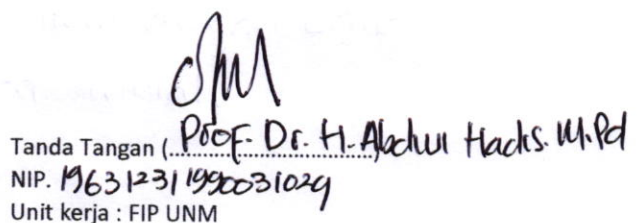 Tanda Tangan (Prof. Dr. H. Abdul Hadis. M.Pd
NIP. 196312311990031029
Unit kerja : FIP UNM